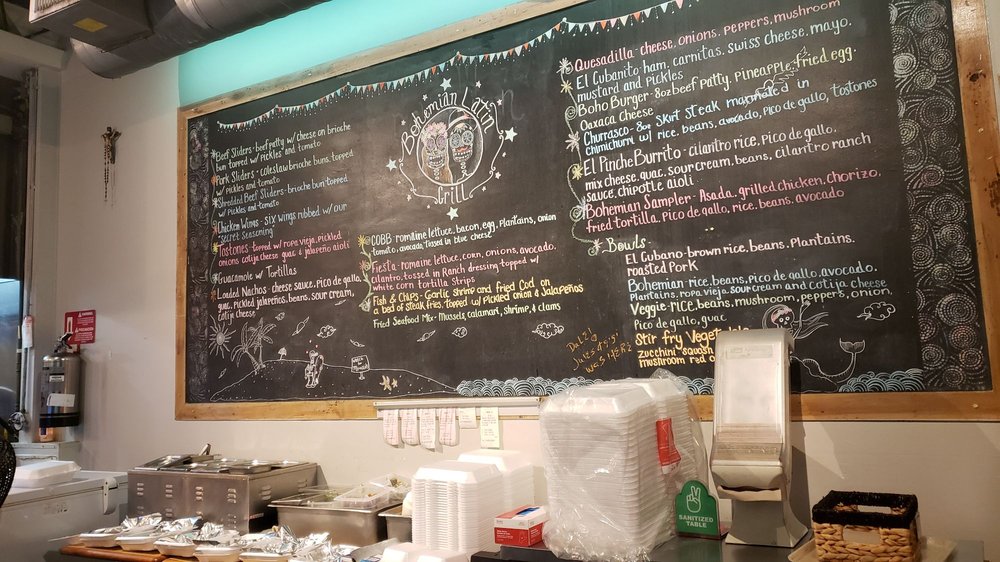 Beef Sliders - beef patty w/ cheese on brioche
bun topped w/ pickles and tomato
Pork Sliders - coleslaw brioche buns topped
w/ pickles and tomato
Shredded Beef Sliders - brioche bun topped
w/ pickles and tomato
Chicken Wings - six wings rubbed w/ our
"secret seasoning"
Tostones - topped w/ ropa vieja, pickled
onions cotija cheese guac & jalapeño aioli
Guacamole w/ Tortillas
Loaded Nachos - cheese sauce, pico de gallo,
guac, pickled jalapeños, beans, sour cream,
cotija cheese
Bohemian Latin
Grill
COBB - romaine lettuce, bacon, egg, Plantains, onion
tomato, avocado, tossed in blue cheese
Fiesta - romaine lettuce, corn, onions, avocado,
cilantro, tossed in Ranch dressing topped w/
white corn tortilla strips
Fish & Chips - Garlic Shrimp and fried Cod on
a bed of steak fries, topped w/ Pickled onion & Jalapeños
Fried Seafood Mix - Mussels, calamari, shrimp, & clams
Quesadilla - cheese, onions, peppers, mushroom
El Cubanito - ham, carnitas, swiss cheese, mayo,
mustard and pickles
Boho Burger - 8oz beef patty, pineapple, fried egg,
Oaxaca Cheese
Churrasco - 8oz Skirt steak marinated in
Chimichurri w/ rice, beans, avocado, Pico de gallo, tostones
El Pinche Burrito - cilantro rice, pico de gallo,
mix cheese, guac, sour cream, beans, cilantro ranch
sauce, chipotle aioli
Bohemian Sampler - Asada, grilled chicken, chorizo,
fried tortilla, Pico de gallo, rice, beans, avocado
Bowls -
El Cubano - brown rice, beans, Plantains,
roasted Pork
Bohemian rice, beans, Pico de gallo, avocado,
Plantains, ropa vieja sour cream and cotija cheese
Veggie - rice, beans, mushroom, peppers, onion,
Pico de gallo, guac
Stir fry
zucchini squash
mushroom red
SANITIZED
TABLE